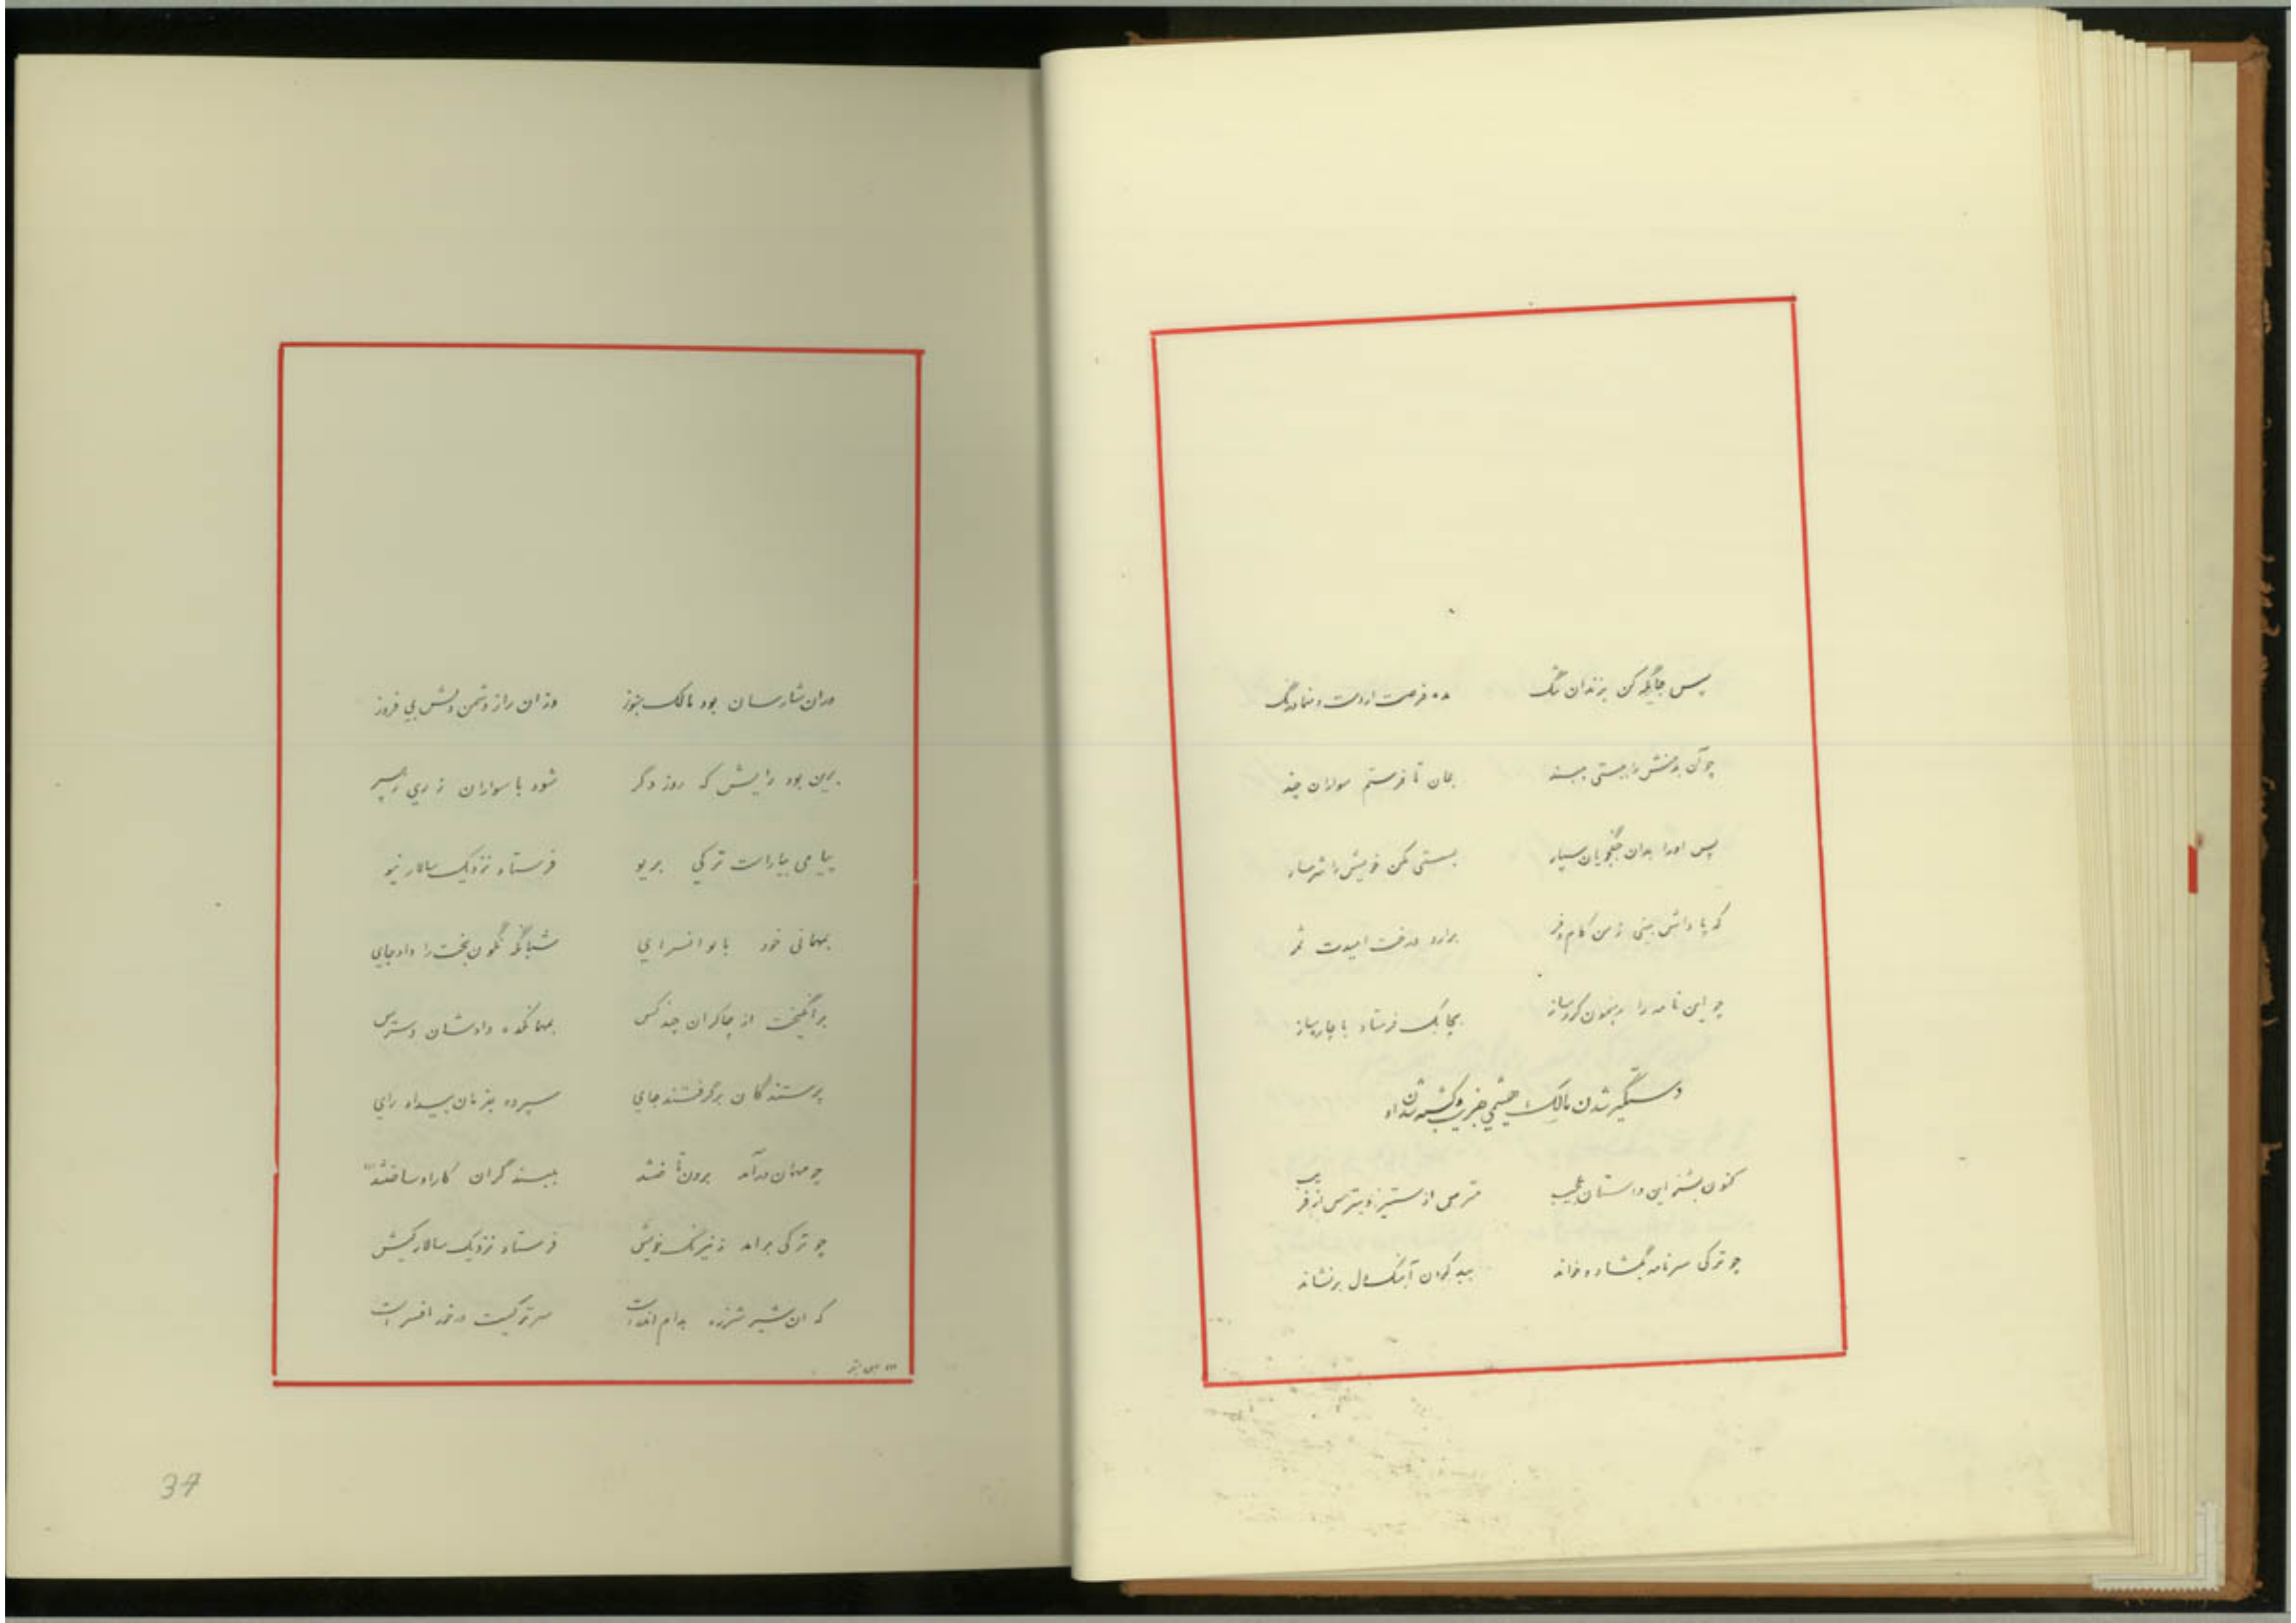 پس جایگه کن بزندان تنگ مده فرصت از دست و منما درنگ
چو آن بدمنش را بجستی ببند بمان تا فرستم سواران چند
پس او را بدان جنگجویان سپار بسستی مکن خویش را شرمسار
که پاداش بینی ز من کام و فر برآرد درخت امیدت ثمر
چو این نامه را رهنمون کرد ساز بچابک فرستاد با چار باز
دستگیر شدن مالک خشمی بفریب و کشته شدن او
کنون بشنو این داستان عجیب مترس از ستیز و بترس از فریب
چو ترکی سر نامه بگشاد و خواند ببد کردن آهنگ دل برنشاند
در آن شارسان بود مالک هنوز وزان راز دشمن دلش بی فروز
برین بود رایش که روز دگر شود با سواران ز ری رهسپر
پیامی بیاراست ترکی بریو فرستاد نزدیک سالار نیو
بمهمانی خود بابوانسرای شبانگه نگون بخت را داد جای
برانگیخت از چاکران چند کس بمهمانکده دادشان دسترس
پرستندگان برگرفتند جای سپرده بفرمان بیداد رای
چو مهمان درآمد برون تاختند ببند گران کار او ساختند
چو ترکی برآمد ز نیرنگ خویش فرستاد نزدیک سالار کیش
که ان شیر شرزه بدام اندرست سر ترکیت در خور افسر است
37